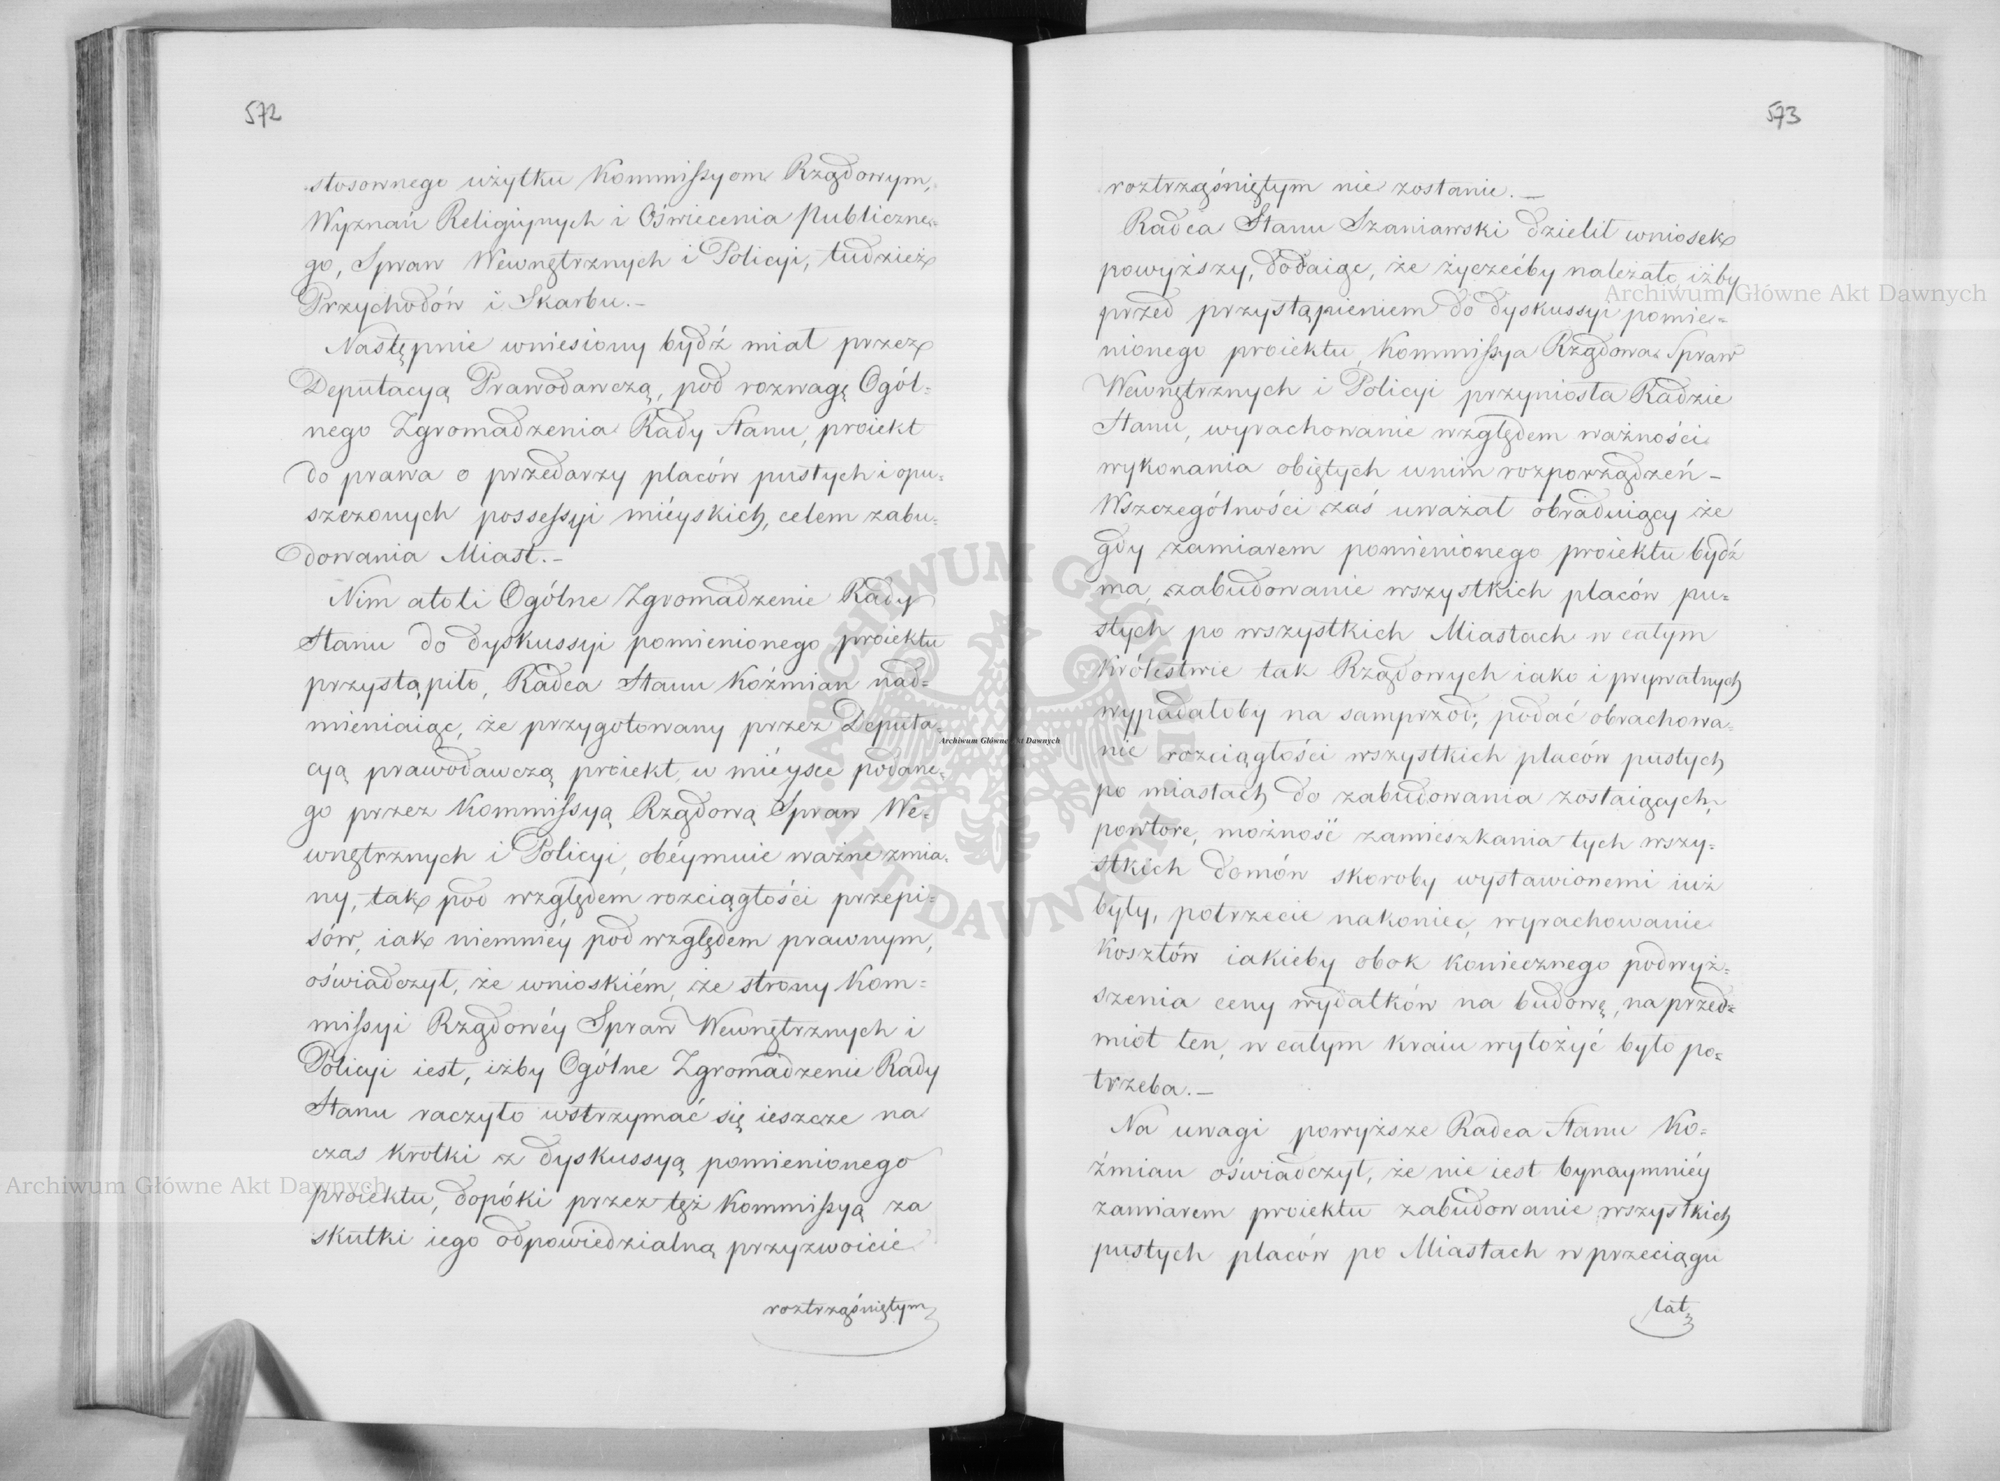 572
stosownego użytku Kommissyom Rządowym,
Wyznań Religiynych i Oświecenia Publiczne=
go, Spraw Wewnętrznych i Policyi, tudzież
Przychodów i Skarbu.—
Następnie wniesiony bydź miał przez
Deputacyą Prawodawczą, pod rozwagę Ogól=
nego Zgromadzenia Rady Stanu, proiekt
do prawa o przedarzy placów pustych i opu=
szczonych possessyi miéyskich, celem zabu=
dowania Miast.—
Nim atoli Ogólne Zgromadzenie Rady
Stanu do dyskussyi pomienionego proiektu
przystąpiło, Radca Stanu Koźmian nad=
mieniaiąc, że przygotowany przez Deputa=
cyą prawodawczą proiekt, w miéysce podane=
go przez Kommissyą Rządową Spraw We=
wnętrznych i Policyi, obéymuie ważne zmia=
ny, tak pod względem rozciągłości przepi=
sów, iak niemniéy pod względem prawnym,
oświadczył, że wnioskiém, ze strony Kom=
missyi Rządowéy Spraw Wewnętrznych i
Policyi iest, iżby Ogólne Zgromadzenie Rady
Stanu raczyło wstrzymać się ieszcze na
czas krotki z dyskussyą pomienionego
proiektu, dopóki przez też Kommissyą za
skutki iego odpowiedzialną przyzwoicie
roztrząśniętym
573
roztrząśniętym nie zostanie.—
Radca Stanu Szaniawski dzielił wniosek
powyższy, dodaiąc, że życzećby należało, iżby
przed przystąpieniem do dyskussyi pomie=
nionego proiektu, Kommissya Rządowa Spraw
Wewnętrznych i Policyi przyniosła Radzie
Stanu, wyrachowanie względem ważności
wykonania obiętych w nim rozporządzeń—
W szczególności zaś uważał obraduiący że
gdy zamiarem pomienionego proiektu bydź
ma, zabudowanie wszystkich placów pu=
stych po wszystkich Miastach w całym
Królestwie tak Rządowych iako i prywatnych
wypadałoby na samprzod; podać obrachowa=
nie rozciągłości wszystkich placów pustych
po miastach do zabudowania zostaiących,
powtore, możność zamieszkania tych wszy=
stkich domów skoroby wystawionemi iuż
były, potrzecie nakoniec, wyrachowanie
kosztów iakieby obok koniecznego podwyż=
szenia ceny wydatków na budowę, na przed=
miot ten, w całym kraiu wyłożyć było po=
trzeba.—
Na uwagi powyższe Radca Stanu Ko=
źmian oświadczył, że nie iest bynaymniéy
zamiarem proiektu zabudowanie wszystkich
pustych placów po Miastach w przeciągu
lat
Archiwum Główne Akt Dawnych
Archiwum Główne Akt Dawnych
Archiwum Główne Akt Dawnych
ARCHIWUM GŁÓWNE AKT DAWNYCH